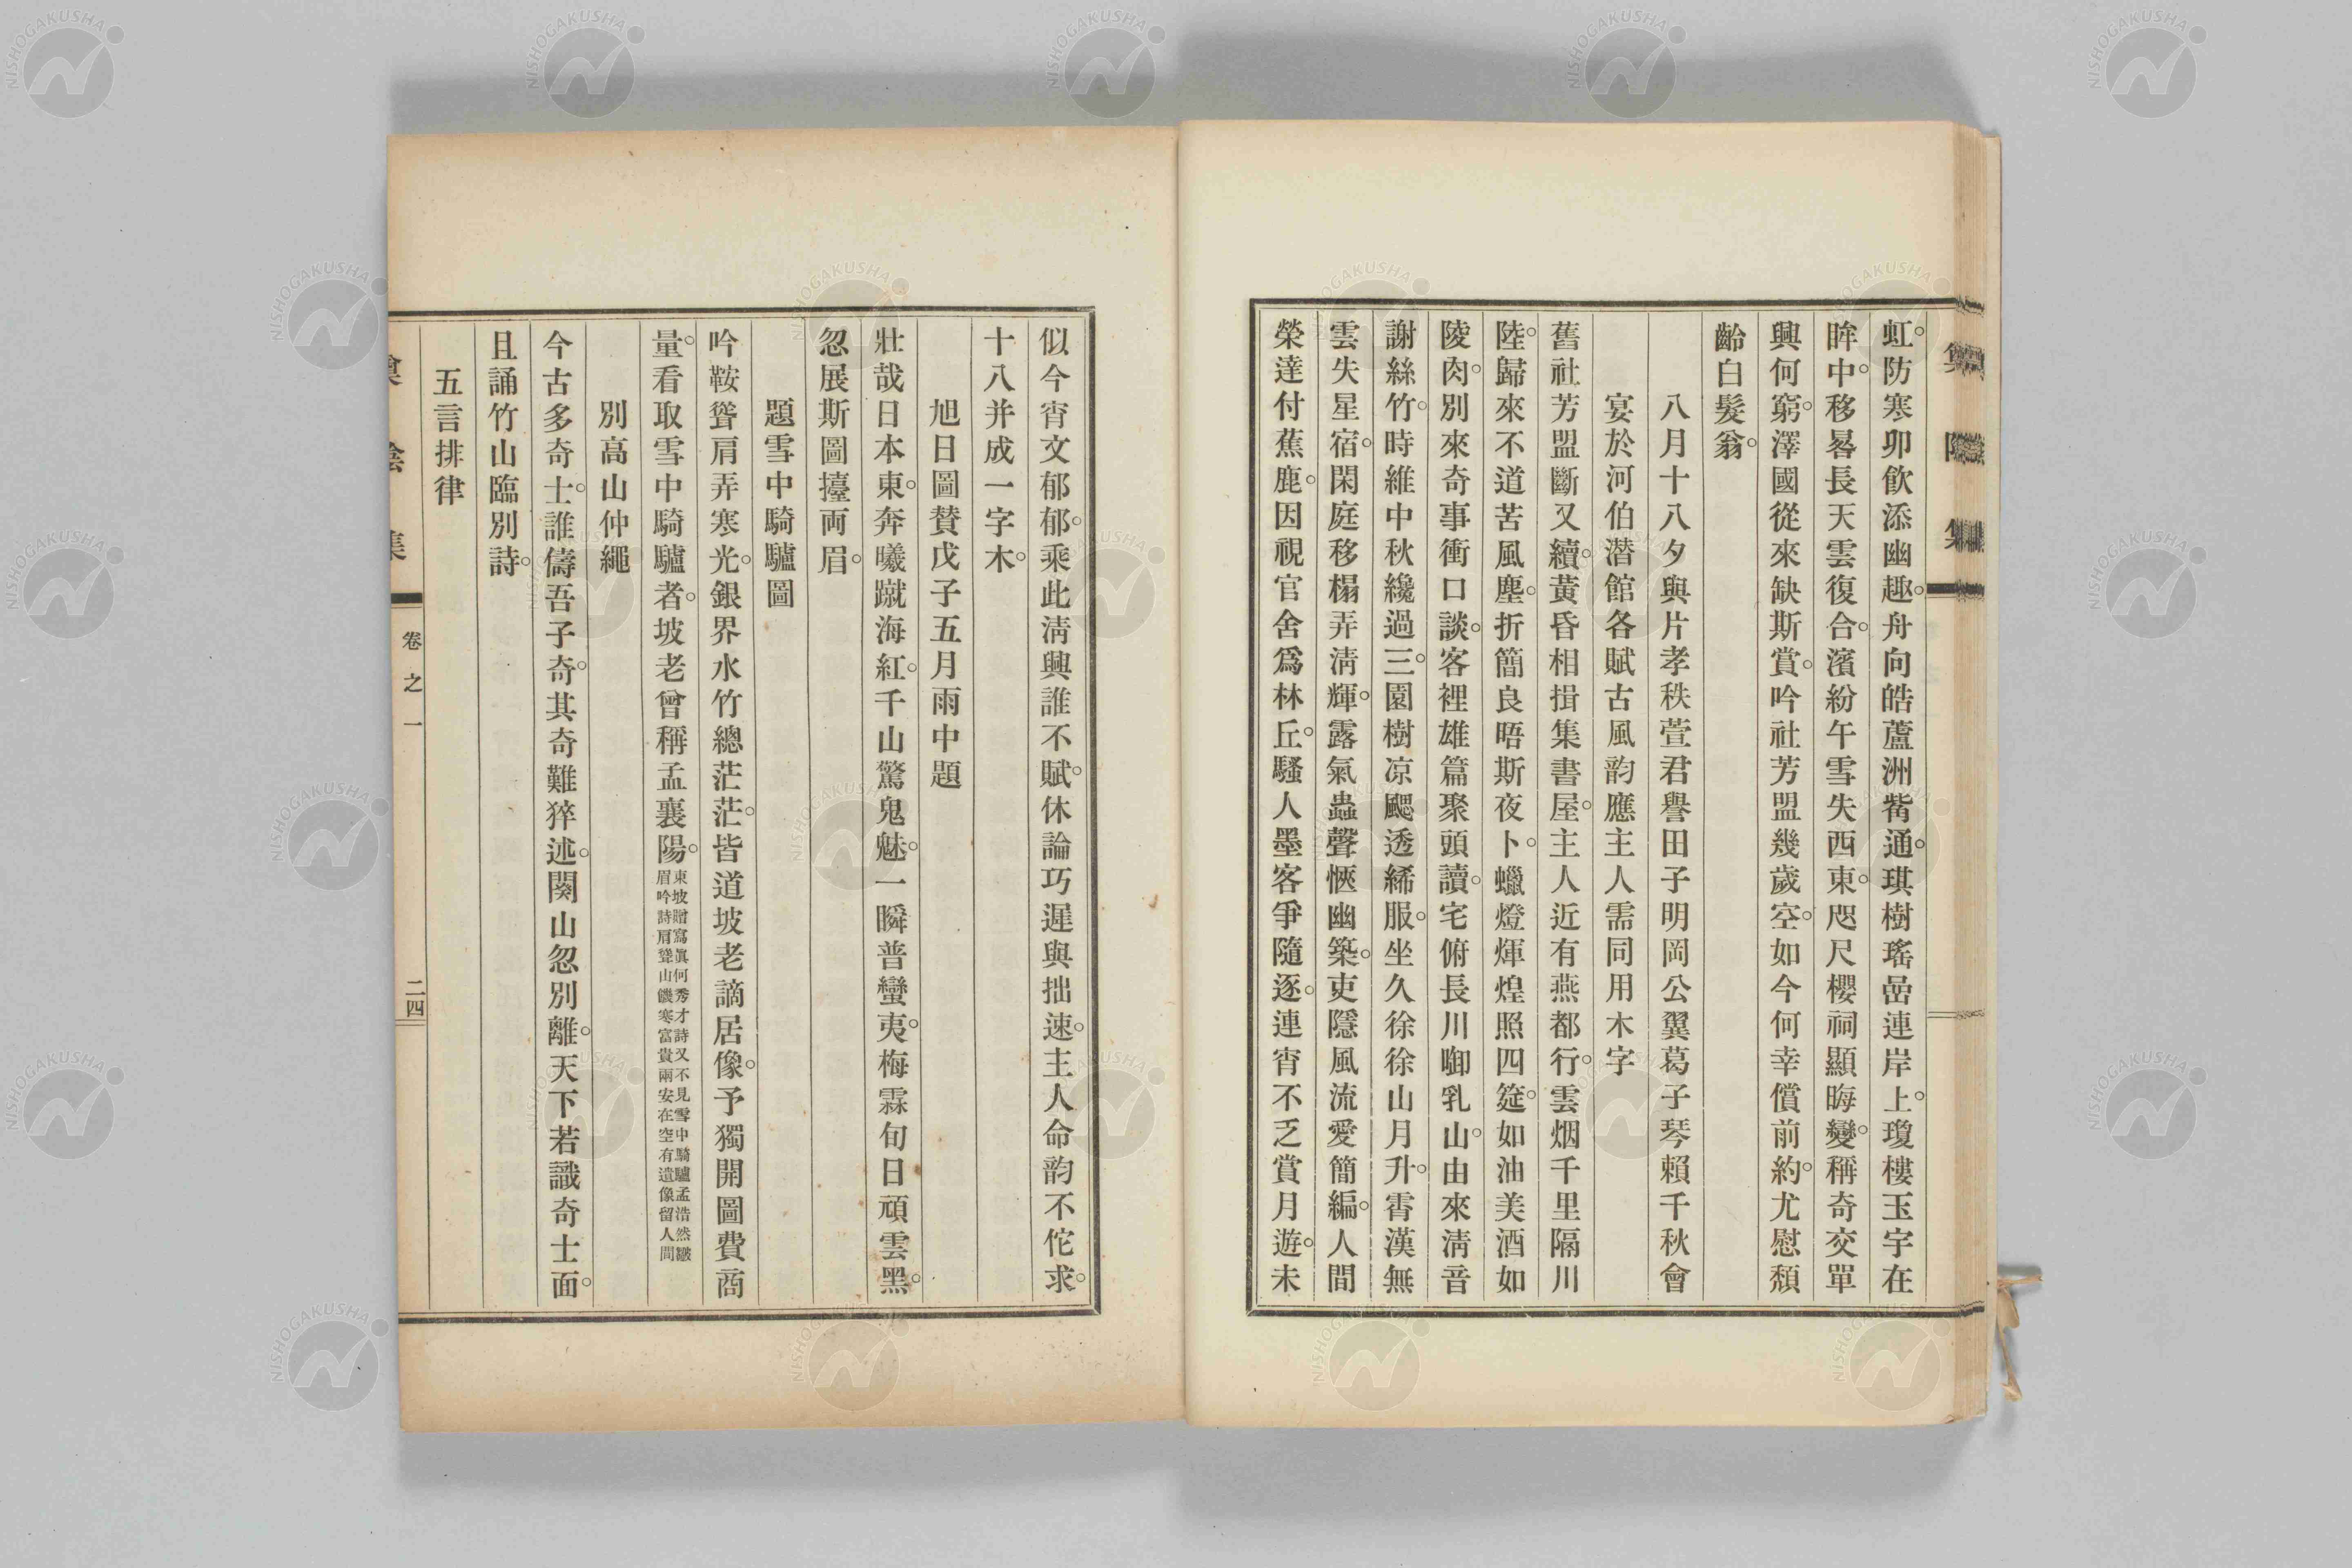 虹。防寒卯飮添幽趣。舟向皓蘆洲觜通。琪樹瑤嵒連岸上。瓊樓玉宇在
眸中。移晷長天雲復合。濱紛午雪失西東。咫尺櫻祠顯晦變。稱奇交單
興何窮。澤國從來缺斯賞。吟社芳盟幾歲空。如今何幸償前約。尤慰頹
齡白髮翁。
八月十八夕與片孝秩萱君譽田子明岡公翼葛子琴賴千秋會
宴於河伯潛館各賦古風韵應主人需同用木字
舊社芳盟斷又續。黃昏相揖集書屋。主人近有燕都行。雲烟千里隔川
陸。歸來不道苦風塵。折簡良晤斯夜卜。蠟燈煇煌照四筵。如油美酒如
陵肉。別來奇事衝口談。客裡雄篇聚頭讀。宅俯長川啣乳山。由來淸音
謝絲竹。時維中秋纔過三。園樹凉飈透絺服。坐久徐徐山月升。霄漢無
雲失星宿。閑庭移榻弄淸輝。露氣蟲聲愜幽築。吏隱風流愛簡編。人間
榮達付蕉鹿。因視官舍爲林丘。騷人墨客爭隨逐。連宵不乏賞月遊。未
似今宵文郁郁。乘此淸興誰不賦。休論巧遲與拙速。主人命韵不佗求。
十八并成一字木。
旭日圖贊戊子五月雨中題
壯哉日本東。奔曦蹴海紅。千山驚鬼魅。一瞬普蠻夷。梅霖旬日頑雲黑。
忽展斯圖擡両眉。
題雪中騎驢圖
吟鞍聳肩弄寒光。銀界水竹總茫茫。皆道坡老謫居像。予獨開圖費商
量。看取雪中騎驢者。坡老曾稱孟襄陽。東坡贈寫眞何秀才詩又不見雪中騎驢孟浩然皺
眉吟詩肩聳山饑寒富貴兩安在空有遺像留人間
別高山仲繩
今古多奇士。誰儔吾子奇。其奇難猝述。関山忽別離。天下若識奇士面。
且誦竹山臨別詩。
五言排律
集
卷之一
二四